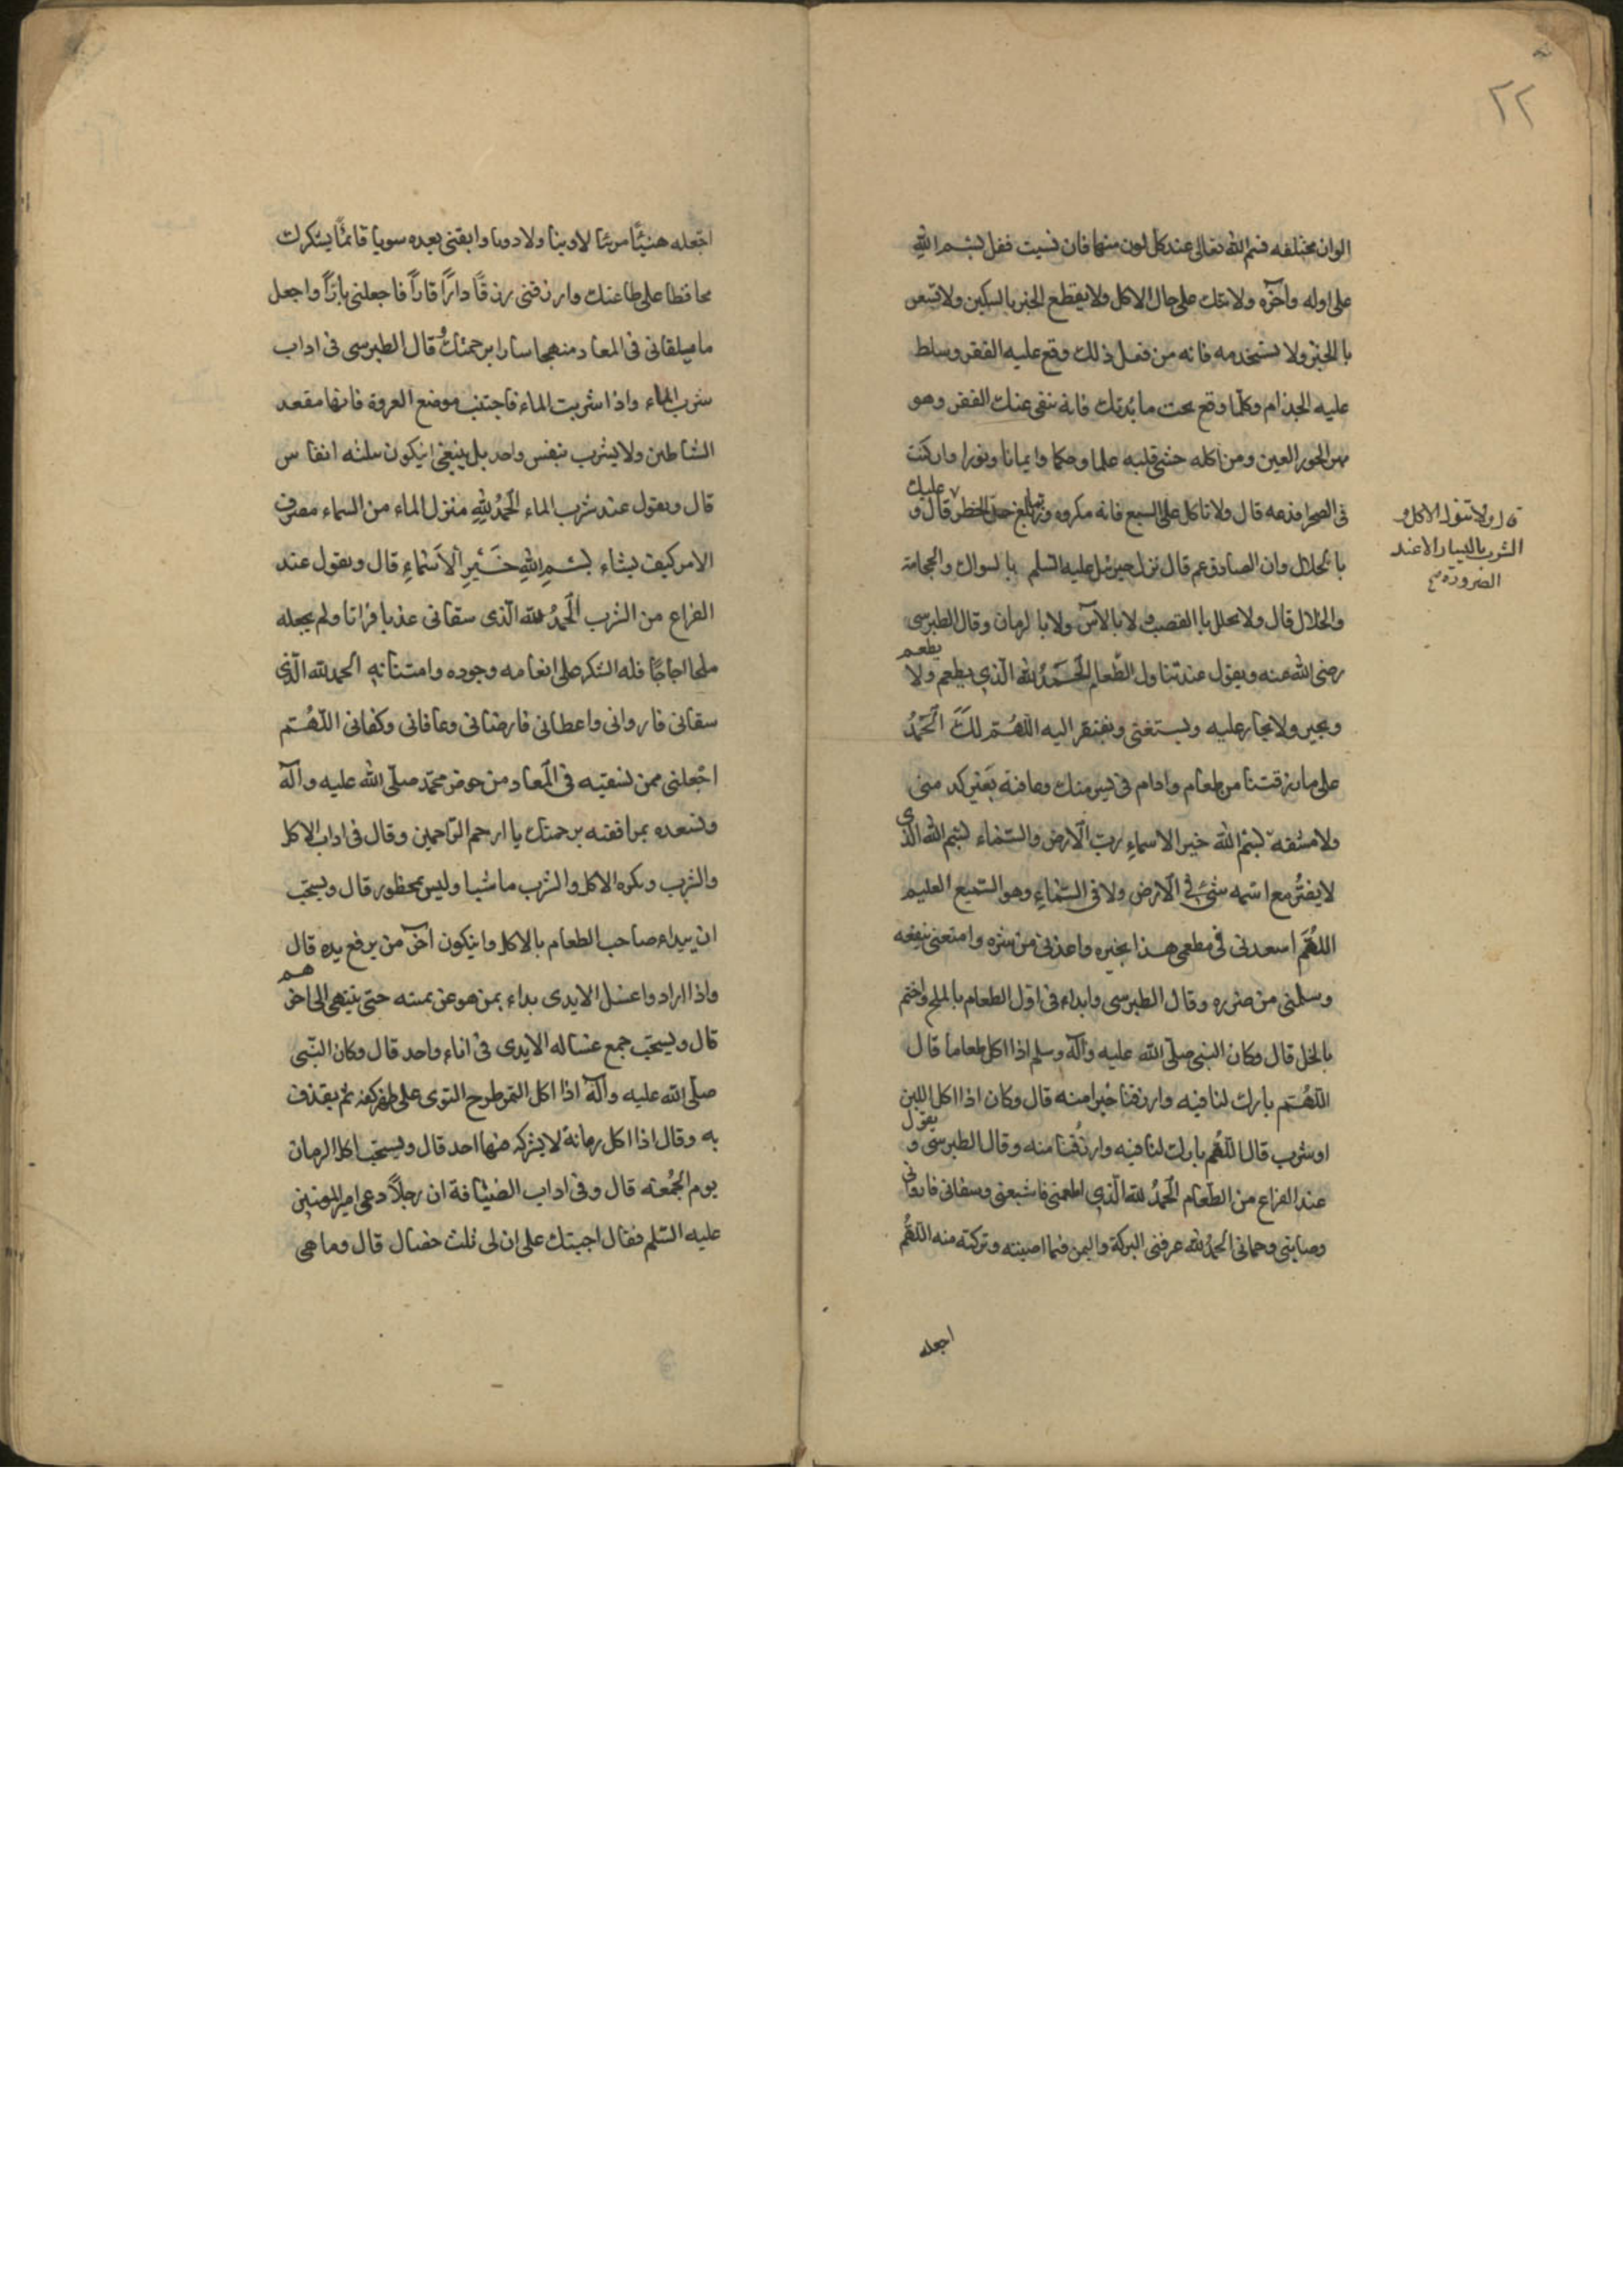 ٢٢
الوان مختلفه فسم الله تعالى عند كل لون منها فان نسيت فقل بسم الله
على اوله وآخره ولا تتك على حال الاكل ولا يقطع الخبز بالسكين ولا
بالخبز ولا يستخدمه فانه من فعل ذلك وقع عليه الفقر وسلط
عليه الجذام وكلما وقع تحت مائدتك فانه ينفى عنك الفقر وهو
مهر الحور العين ومن اكله حشى قلبه علما وحكما وايمانا ونورا وان كنت
فى الصحرا فدعه قال ولا تاكل على الشبع فانه مكروه و يبلغ حد الخطر قال و عليك
قال ولا تتول الاكل و
الشرب باليسار الا عند
الضرورة
بالخلال وان الصادق عم قال نزل جبرئيل عليه السلم بالسواك والحجامة
والخلال قال ولا تخلل بالقصب ولا بالآس ولا بالرمان وقال الطبرسى
رضى الله عنه ويقول عند تناول الطعام الحمد لله الذي يطعم ولا يطعم
ويجير ولا يجار عليه ويستغنى ويفتقر اليه اللهم لك الحمد
على ما رزقتنا من طعام وادام فى يسر منك وعافية بغير كد منى
ولا مشقة بسم الله خير الاسماء رب الارض والسماء بسم الله الذى
لا يضر مع اسمه شئ فى الارض ولا فى السماء وهو السميع العليم
اللهم اسعدنى فى مطعمى هذا بخيره واعذنى من شره وامتعنى بنفعه
وسلمنى من ضرره وقال الطبرسى وابداء فى اول الطعام بالملح واختم
بالخل قال وكان النبى صلى الله عليه وآله وسلم اذا اكل طعاما قال
اللهم بارك لنا فيه وارزقنا خيرا منه قال وكان اذا اكل اللبن
او شرب قال اللهم بارك لنا فيه وارزقنا منه وقال الطبرسى و يقول
عند الفراغ من الطعام الحمد لله الذي اطعمنى فاشبعنى وسقانى فاروانى
وصاننى وحمانى الحمد لله عرفنى البركة واليمن فيما اصبته وتركته منه اللهم
اجعله
اجعله هنيئا مريئا لا وبيئا ولا دويا وابقنى بعده سويا قائما بشكرك
محافظا على طاعتك وارزقنى رزقا دارا قارا فاجعلنى بارا واجعل
ما يتلقانى فى المعاد منهجا سارا برحمتك وقال الطبرسى فى اداب
شرب الماء واذا شربت الماء فاجتنب موضع العروة فانها مقعد
الشاطين ولا يشرب بنفس واحد بل ينبغى ان يكون ثلثه انفاس
قال ويقول عند شرب الماء الحمد لله منزل الماء من السماء مصرف
الامر كيف يشاء بسم الله خير الاسماء قال ويقول عند
الفراغ من الشرب الحمد لله الذى سقانى عذبا فراتا ولم يجعله
ملحا اجاجا فله الشكر على انعامه وجوده وامتنانه الحمد لله الذى
سقانى فاروانى واعطانى فارضانى وعافانى وكفانى اللهم
اجعلنى ممن تسقيه فى المعاد من حوض محمد صلى الله عليه وآله
وتسعده بمرافقته برحمتك يا ارحم الراحمين وقال فى اداب الاكل
والشرب ويكره الاكل والشرب ماشيا وليس بمحظور قال ويستحب
ان يبداء صاحب الطعام بالاكل وان يكون آخر من يرفع يده قال
واذا ارادوا غسل الايدى بداء بمن هو عن يمينه حتى ينتهى الى اخرهم
قال ويستحب جمع غساله الايدى فى اناء واحد قال وكان النبى
صلى الله عليه وآله اذا اكل التمر طرح النوى على ظهر كفه ثم يقذف
به وقال اذا اكل رمانة لا يشركه فيها احد قال ويستحب اكل الرمان
يوم الجمعه قال وفى اداب الضيافة ان رجلا دعى امير المومنين
عليه السلم فقال اجبتك على ان لى ثلث خصال قال وما هى